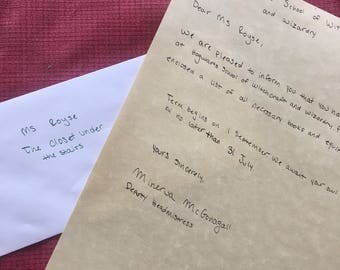 School of Wit
and wizardry
Dear Ms Royse,
We are pleased to inform you that you ha
at Hogwarts School of witchcraft and wizardry,
enclosed a list of all necessary books and equip
Term begins on 1 September. We await your owl
by no later than 31 July
Yours Sincerely,
Minerva McGonagall
Deputy Headmistress
Ms Royse
The Closet under
the stairs